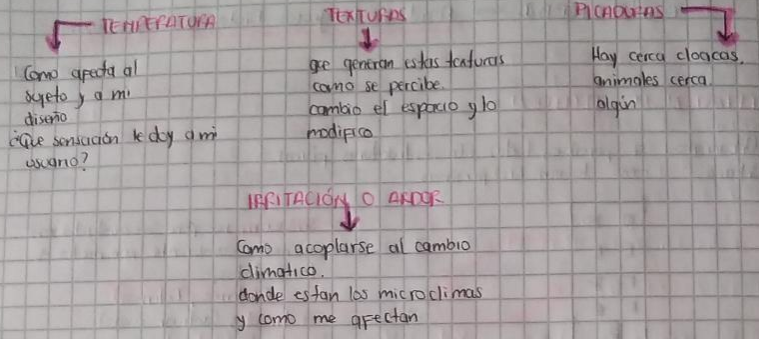 TEMPERATURA
Como afecta al
sujeto y a mi
diseño
¿Que sensación le doy a mi
usuario?
TEXTURAS
que generan estas texturas
como se percibe.
cambio el espacio y lo
modifico
PICADURAS
Hay cerca cloacas.
animales cerca.
algún
IRRITACIÓN O ARDOR
Como acoplarse al cambio
climatico.
donde estan los microclimas
y como me afectan